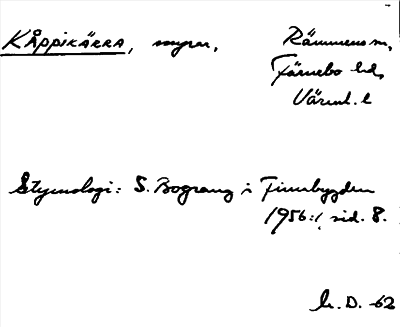 KÅPPIKÄRRA, myrar, Rämmens sn,
Färnebo hd,
Värml. l
Etymologi: S. Bograng i Finnbygden
1956:1, sid. 8.
h. D. -62